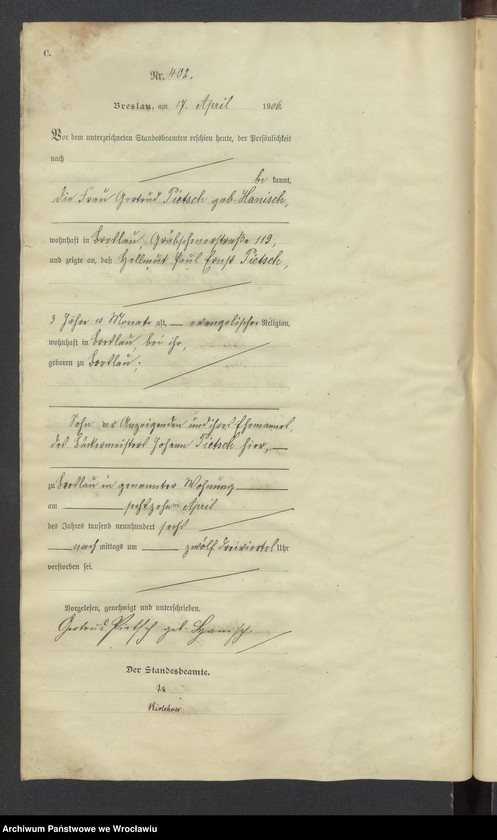 C.
Nr. 402.
Breslau, am 17. April 1906.
Vor dem unterzeichneten Standesbeamten erschien heute, der Persönlichkeit
nach
be kannt,
die Frau Gertrud Pietsch geb. Hanisch,
wohnhaft in Breslau, Gräbschenerstraße 119,
und zeigte an, daß Hellmut Paul Ernst Pietsch,
3 Jahre 10 Monate alt, evangelischer Religion,
wohnhaft in Breslau, bei ihr,
geboren zu Breslau,
Sohn der Anzeigenden und ihres Ehemannes,
des Bäckermeisters Johann Pietsch hier,
zu Breslau in genannter Wohnung
am sechzehnten April
des Jahres tausend neunhundert sechs
nach mittags um zwölf dreiviertel Uhr
verstorben sei.
Vorgelesen, genehmigt und unterschrieben.
Gertrud Pietsch geb. Hanisch
Der Standesbeamte.
Archiwum Państwowe we Wrocławiu